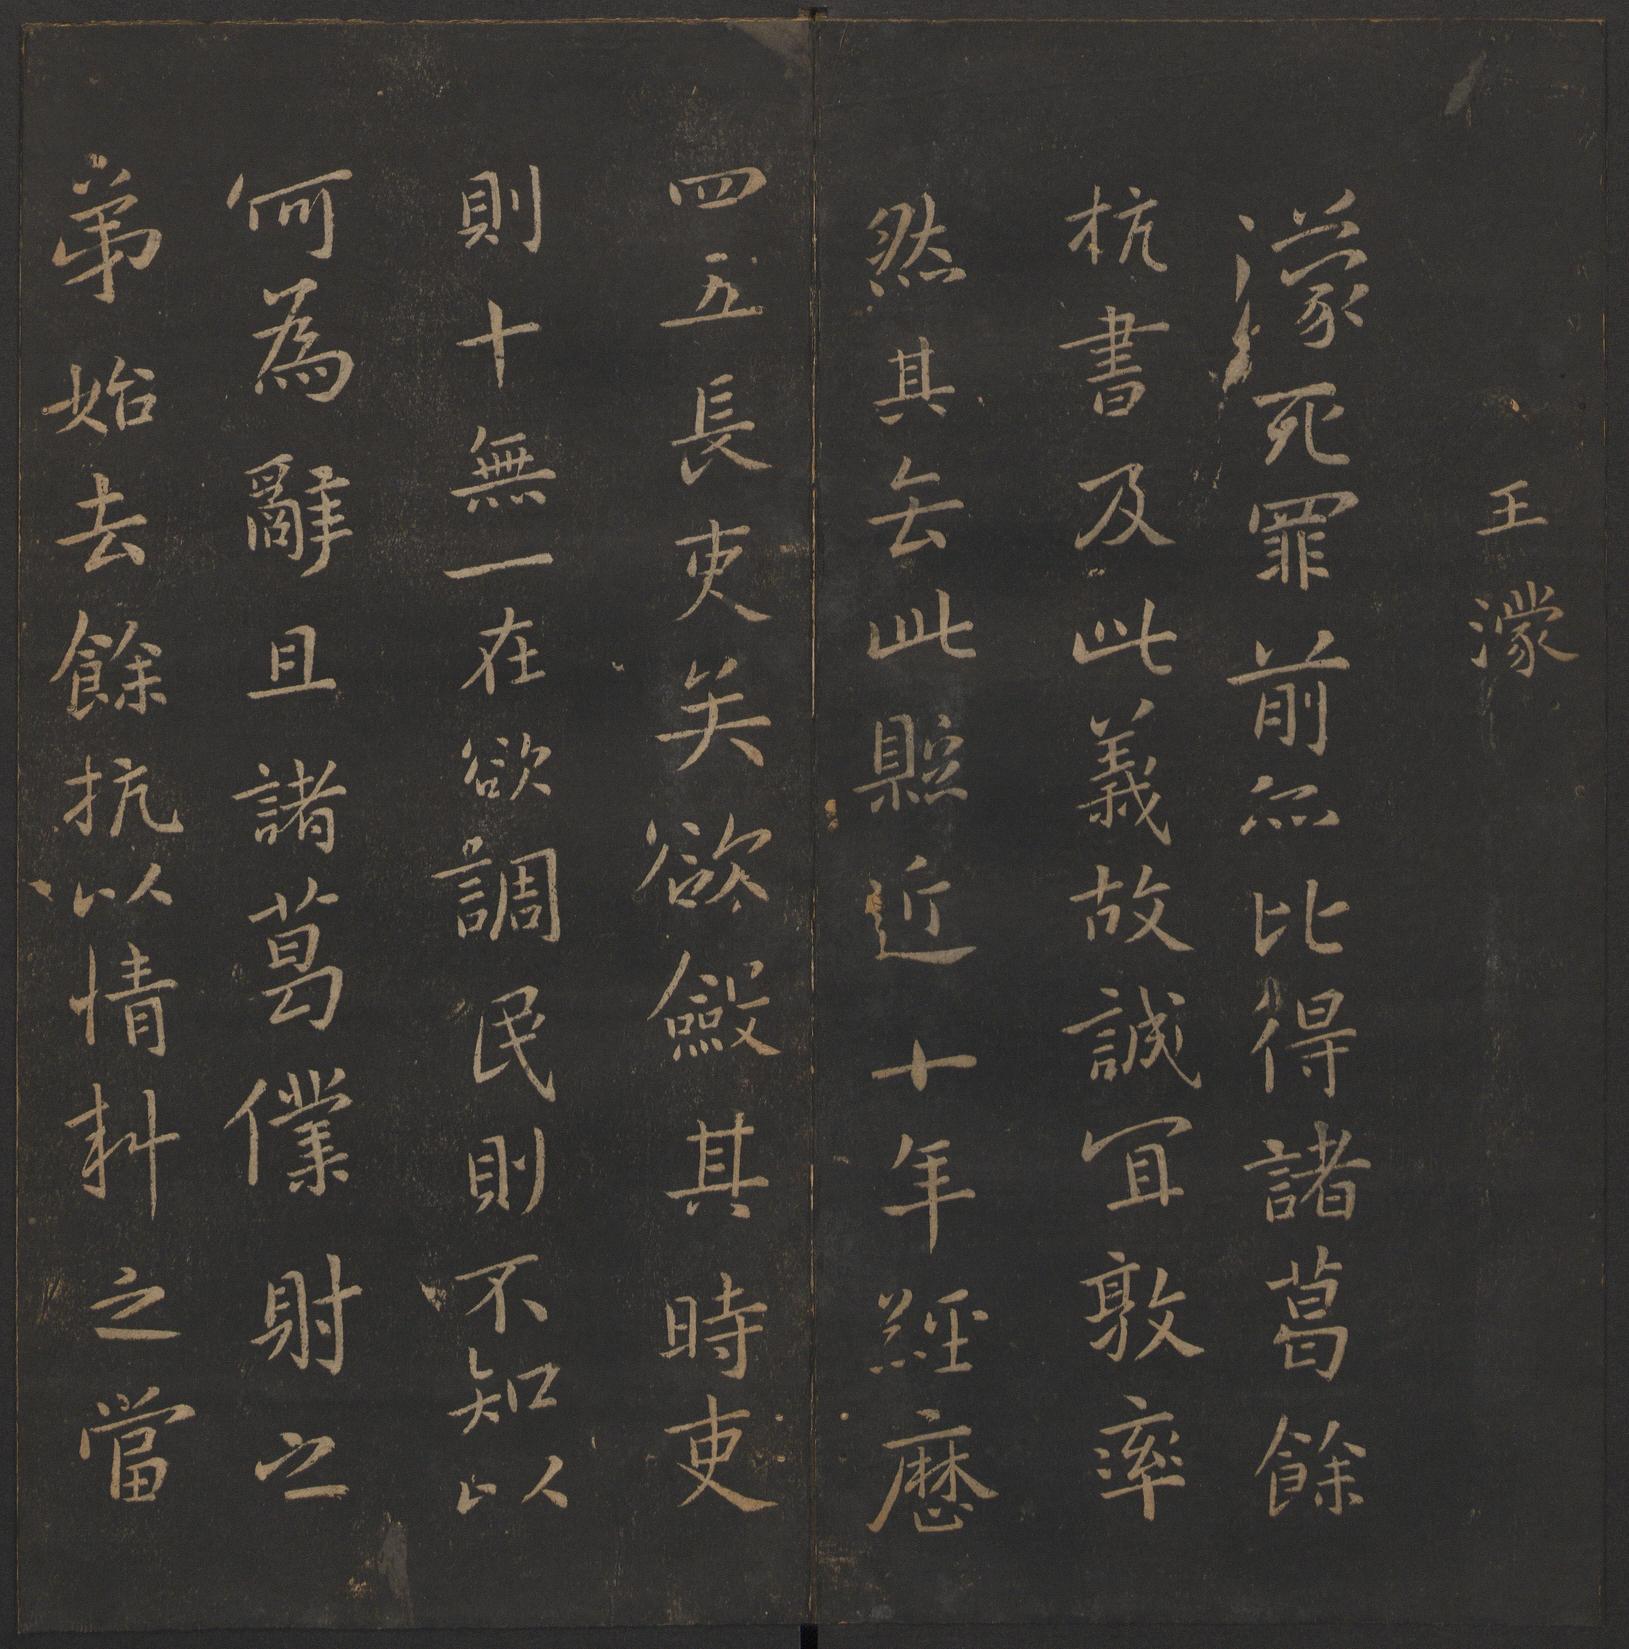 王濛
濛死罪前亦比得諸葛餘
杭書及此義故誠宜敦率
然其去此縣近十年經歷
四五長吏矣欲斂其時吏
則十無一在欲調民則不知以
何為辭且諸葛僕射之
弟始去餘杭以情料之當